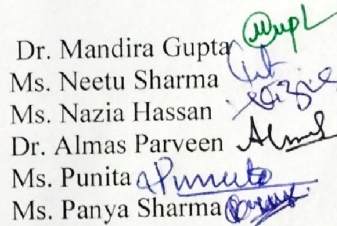 Dr. Mandira Gupta
Ms. Neetu Sharma
Ms. Nazia Hassan
Dr. Almas Parveen
Ms. Punita Punita
Ms. Panya Sharma